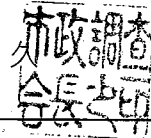 市政調査
会長之印